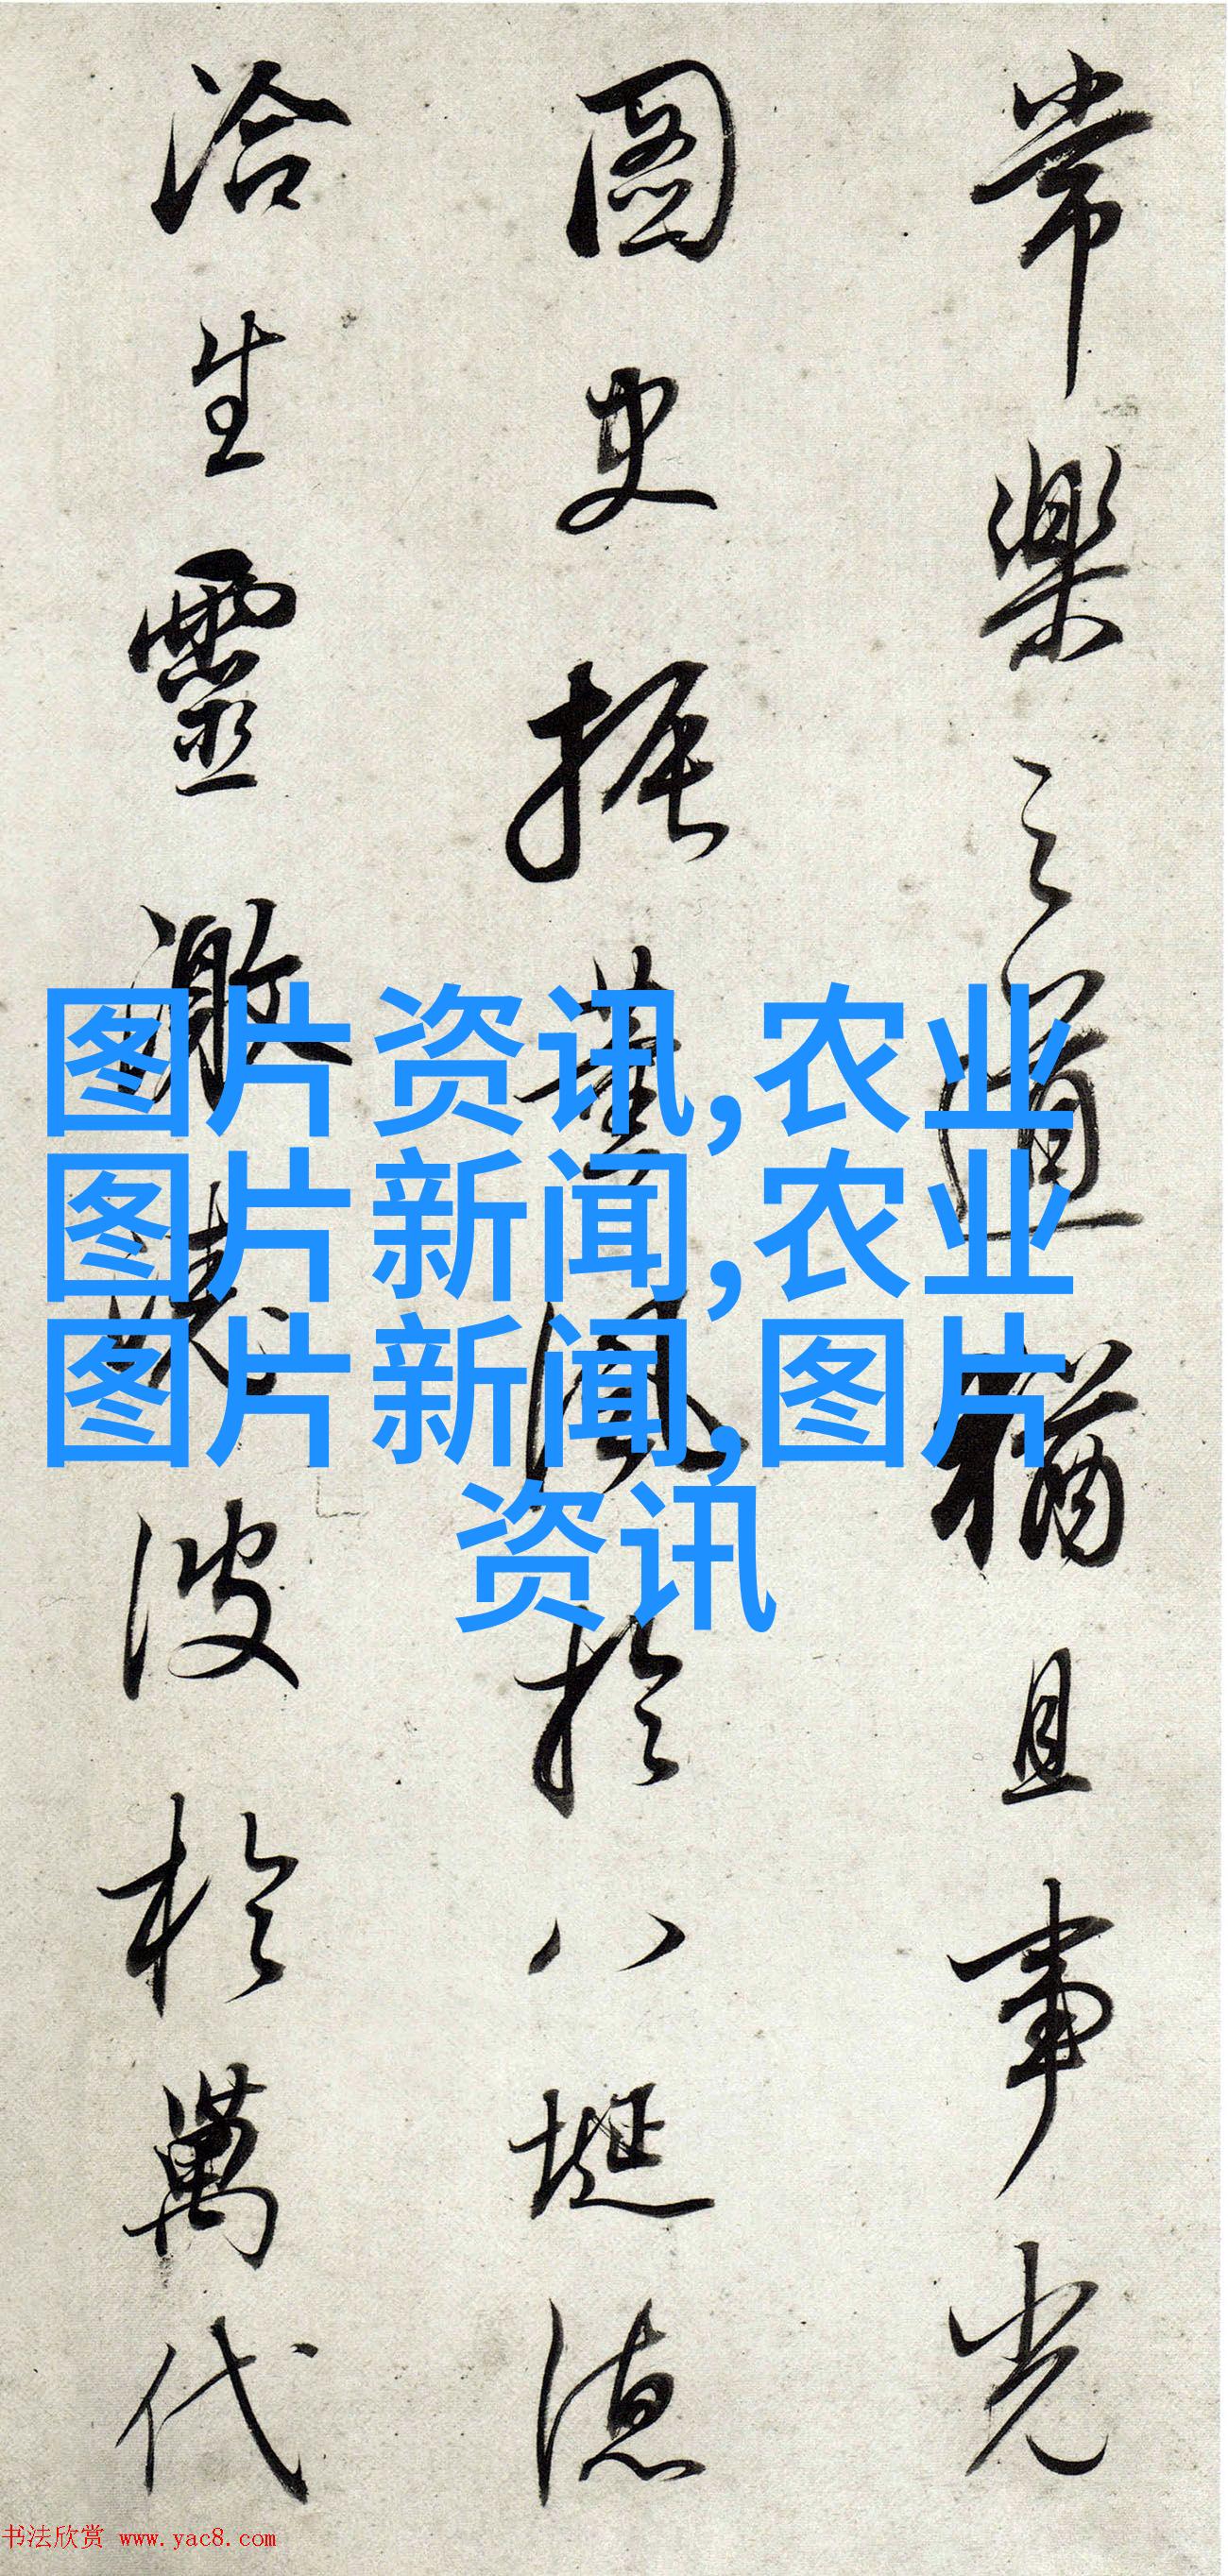 常樂之道猶且事光
圖史振薫風於八埏德
洽生靈激堯波於萬代
图片资讯,农业
图片新闻,农业
图片新闻,图片
资讯
书法欣赏 www.yac8.com